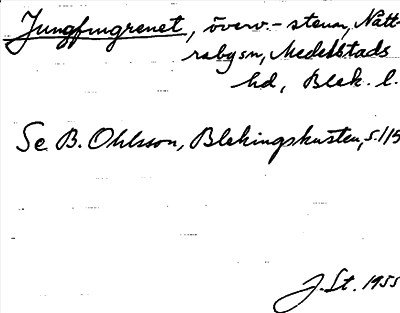 Jungfrugrenet, överv.-stenar, Nätt-
rabysn, Medelstads
hd, Blek. l.
Se B. Ohlsson, Blekingskusten, s. 115
J. St. 1955